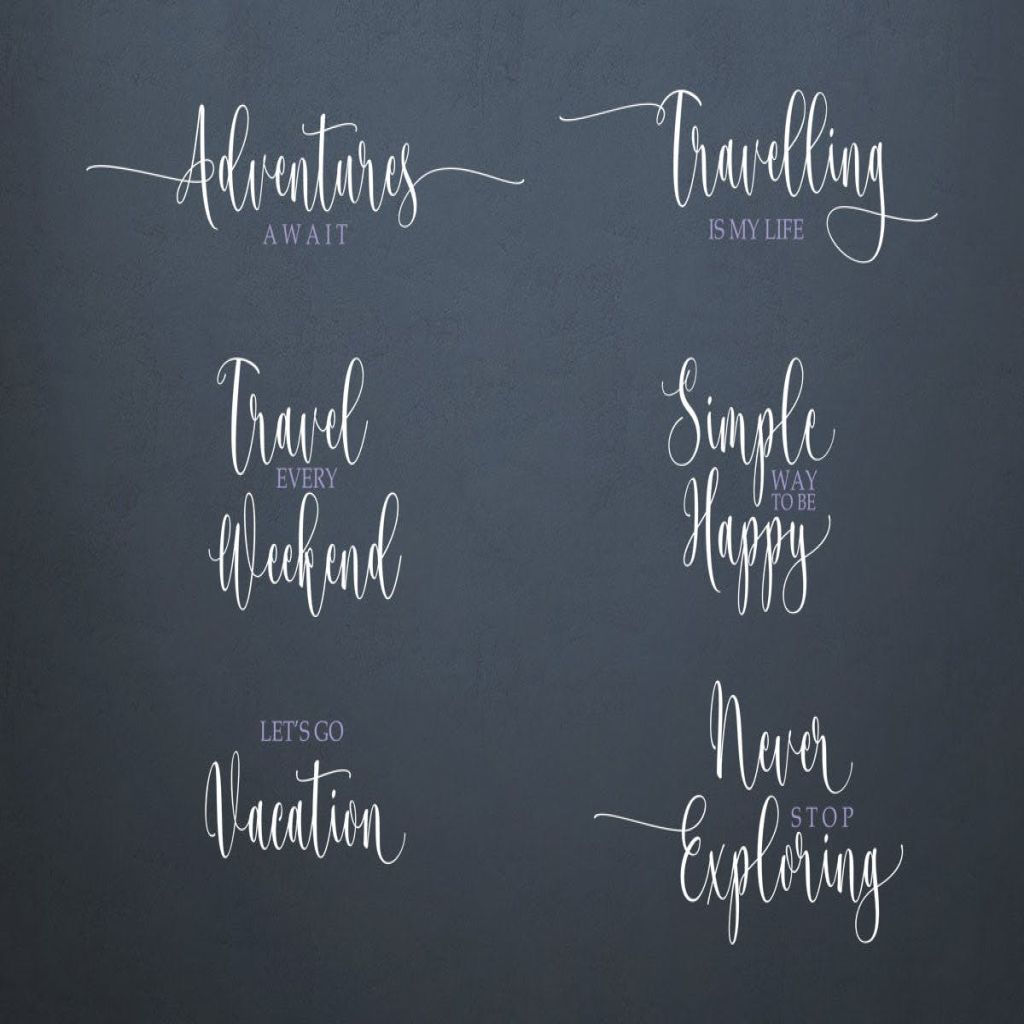 Adventures
AWAIT
Travelling
IS MY LIFE
Travel
EVERY
Weekend
Simple
WAY
TO BE
Happy
LET'S GO
Vacation
Never
STOP
Exploring